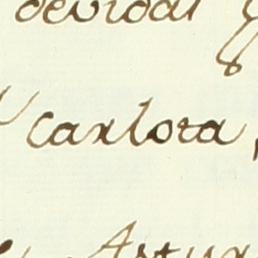 devidal
Carlota,
Astur